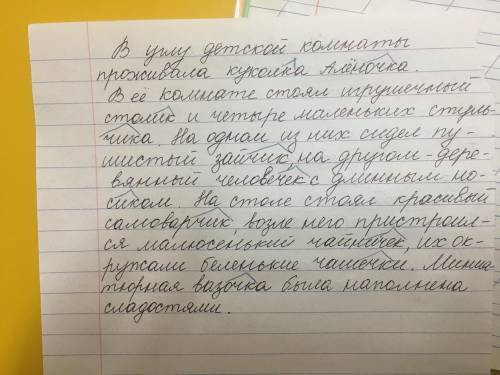 В углу детской комнаты
проживала куколка Алёночка.
В её комнате стоял игрушечный
столик и четыре маленьких стуль-
чика. На одном из них сидел пу-
шистый зайчик, на другом - дере-
вянный человечек с длинным но-
сиком. На столе стоял красивый
самоварчик, возле него пристроил-
ся малюсенький чайночек, их ок-
ружали беленькие чашечки. Миниа
тюрная вазочка была наполнена
сладостями.